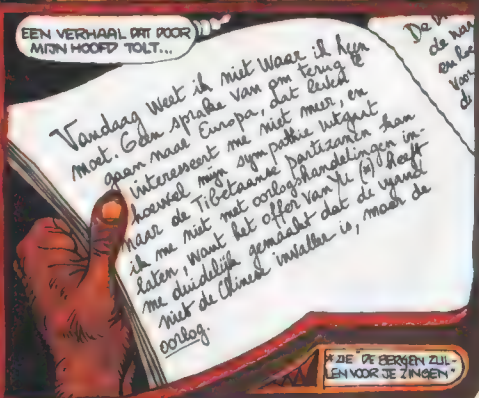 EEN VERHAAL DAT DOOR
MIJN HOOFD TOLT...
Vandaag weet ik niet waar ik heen
moet. Geen sprake van om terug te
gaan naar Europa, dat leven
interesseert me niet meer, en
hoewel mijn sympathie uitgaat
naar de Tibetaanse partizanen kan
ik me niet met oorlogshandelingen in-
laten, want het offer van Yu (*) heeft
me duidelijk gemaakt dat de vijand
niet de Chinese invaller is, maar de
oorlog.
De
de
en
* ZIE "DE BERGEN ZUL-
LEN VOOR JE ZINGEN"